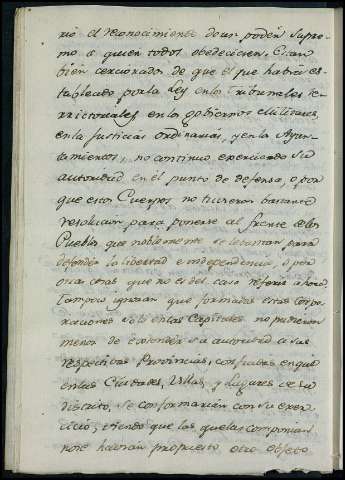 rio el reconocimiento de un poder supre-
mo a quien todos obedeciesen. Estan
bien cercionados de que el que habia es-
tablecido por la Ley en los Tribunales te-
rritoriales, en los gobiernos Militares,
en las Justicias ordinarias, y en los Ayun-
tamientos, no continuó exerciendo su
autoridad en el punto de defensa, o por
que estos Cuerpos no tuvieron bastante
resolucion para ponerse al frente de los
Pueblos, que noblemente se levantan para
defender la libertad e independencia, o por
otras cosas que no es del caso referir ahora.
Tampoco ignoran que formadas estas corpo-
raciones solo en las Capitales no pudieron
menos de extender su autoridad a sus
respectivas Provincias, confiadas en que
en las Ciudades, Villas, y Lugares de su
distrito, se conformarian con su exer-
cicio; viendo que los que las componian
no se havian propuesto otro objeto